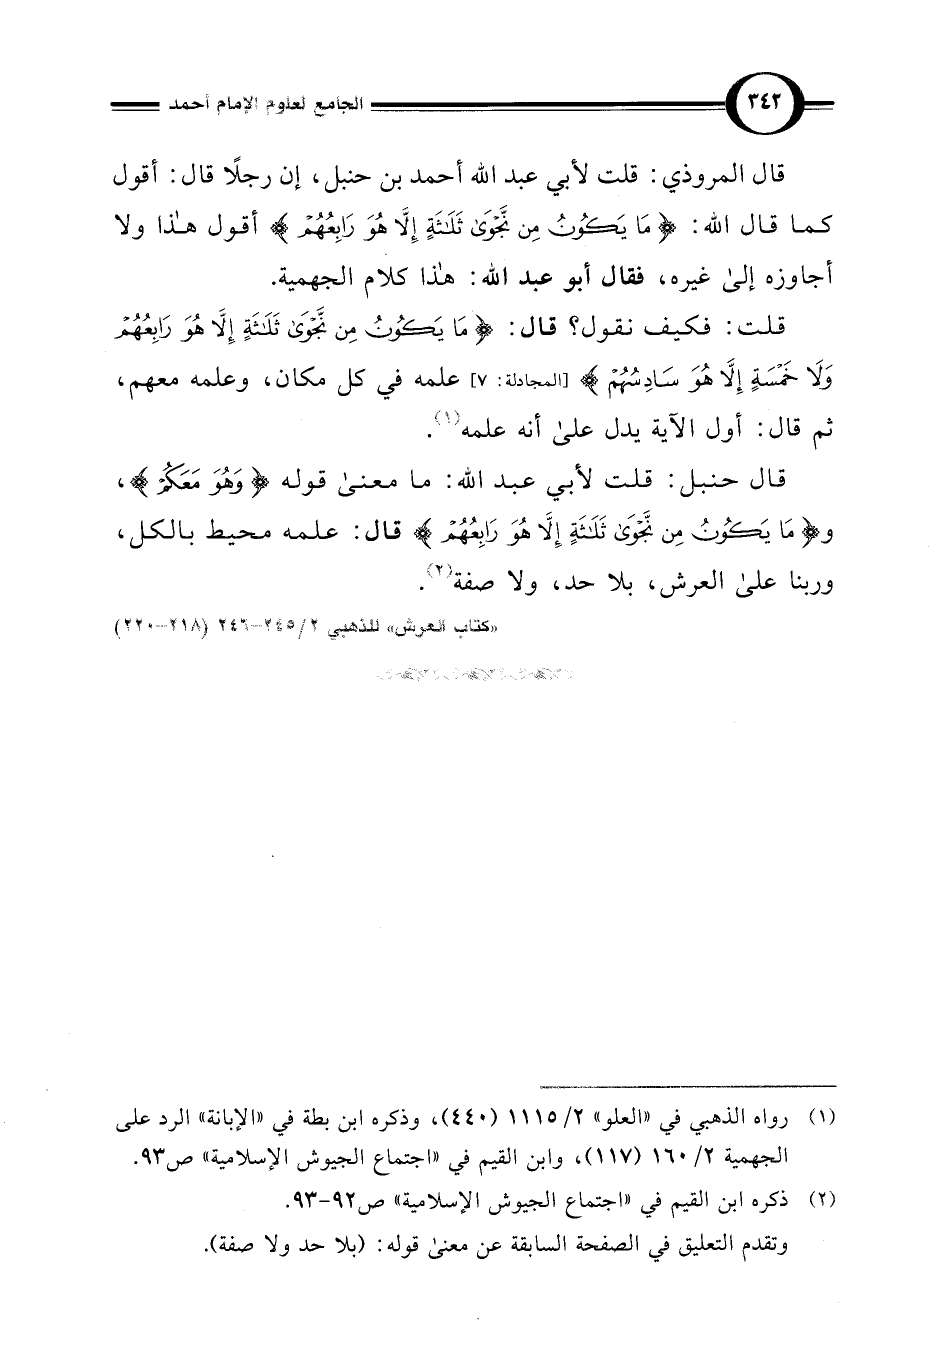 ٣٤٢ الجامع لعلوم الإمام أحمد
قال المروذي: قلت لأبي عبد الله أحمد بن حنبل، إن رجلًا قال: أقول
كما قال الله: ﴿مَا يَكُونُ مِن نَّجْوَىٰ ثَلَاثَةٍ إِلَّا هُوَ رَابِعُهُمْ﴾ أقول هذا ولا
أجاوزه إلىٰ غيره، فقال أبو عبد الله: هذا كلام الجهمية.
قلت: فكيف نقول؟ قال: ﴿مَا يَكُونُ مِن نَّجْوَىٰ ثَلَاثَةٍ إِلَّا هُوَ رَابِعُهُمْ
وَلَا خَمْسَةٍ إِلَّا هُوَ سَادِسُهُمْ﴾ [المجادلة: ٧] علمه في كل مكان، وعلمه معهم،
ثم قال: أول الآية يدل علىٰ أنه علمه(١).
قال حنبل: قلت لأبي عبد الله: ما معنىٰ قوله ﴿وَهُوَ مَعَكُمْ﴾،
و﴿مَا يَكُونُ مِن نَّجْوَىٰ ثَلَاثَةٍ إِلَّا هُوَ رَابِعُهُمْ﴾ قال: علمه محيط بالكل،
وربنا علىٰ العرش، بلا حد، ولا صفة(٢).
«كتاب العرش» للذهبي ٢/ ٢٤٥-٢٤٦ (٢١٨-٢٢٠)
(١) رواه الذهبي في «العلو» ٢/ ١١١٥ (٤٤٠)، وذكره ابن بطة في «الإبانة» الرد على
الجهمية ٢/ ١٦٠ (١١٧)، وابن القيم في «اجتماع الجيوش الإسلامية» ص٩٣.
(٢) ذكره ابن القيم في «اجتماع الجيوش الإسلامية» ص٩٢-٩٣.
وتقدم التعليق في الصفحة السابقة عن معنىٰ قوله: (بلا حد ولا صفة).